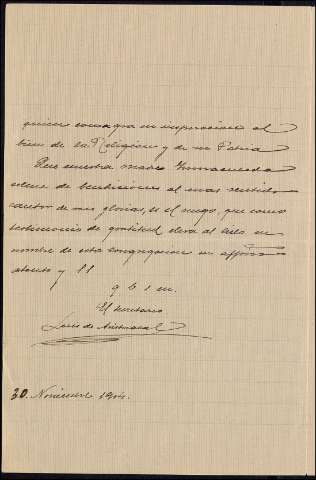 quien consagra su inspiracion al
bien de la Religion y de su Patria
Que nuestra madre Inmaculada
colme de bendiciones al mas sentido
cantor de sus glorias, es el ruego, que como
testimonio de gratitud eleva al cielo en
nombre de esta congregacion su affmo
atento y SS
q b s m.
El Secretario
Luis de
30. Noviembre 1904.